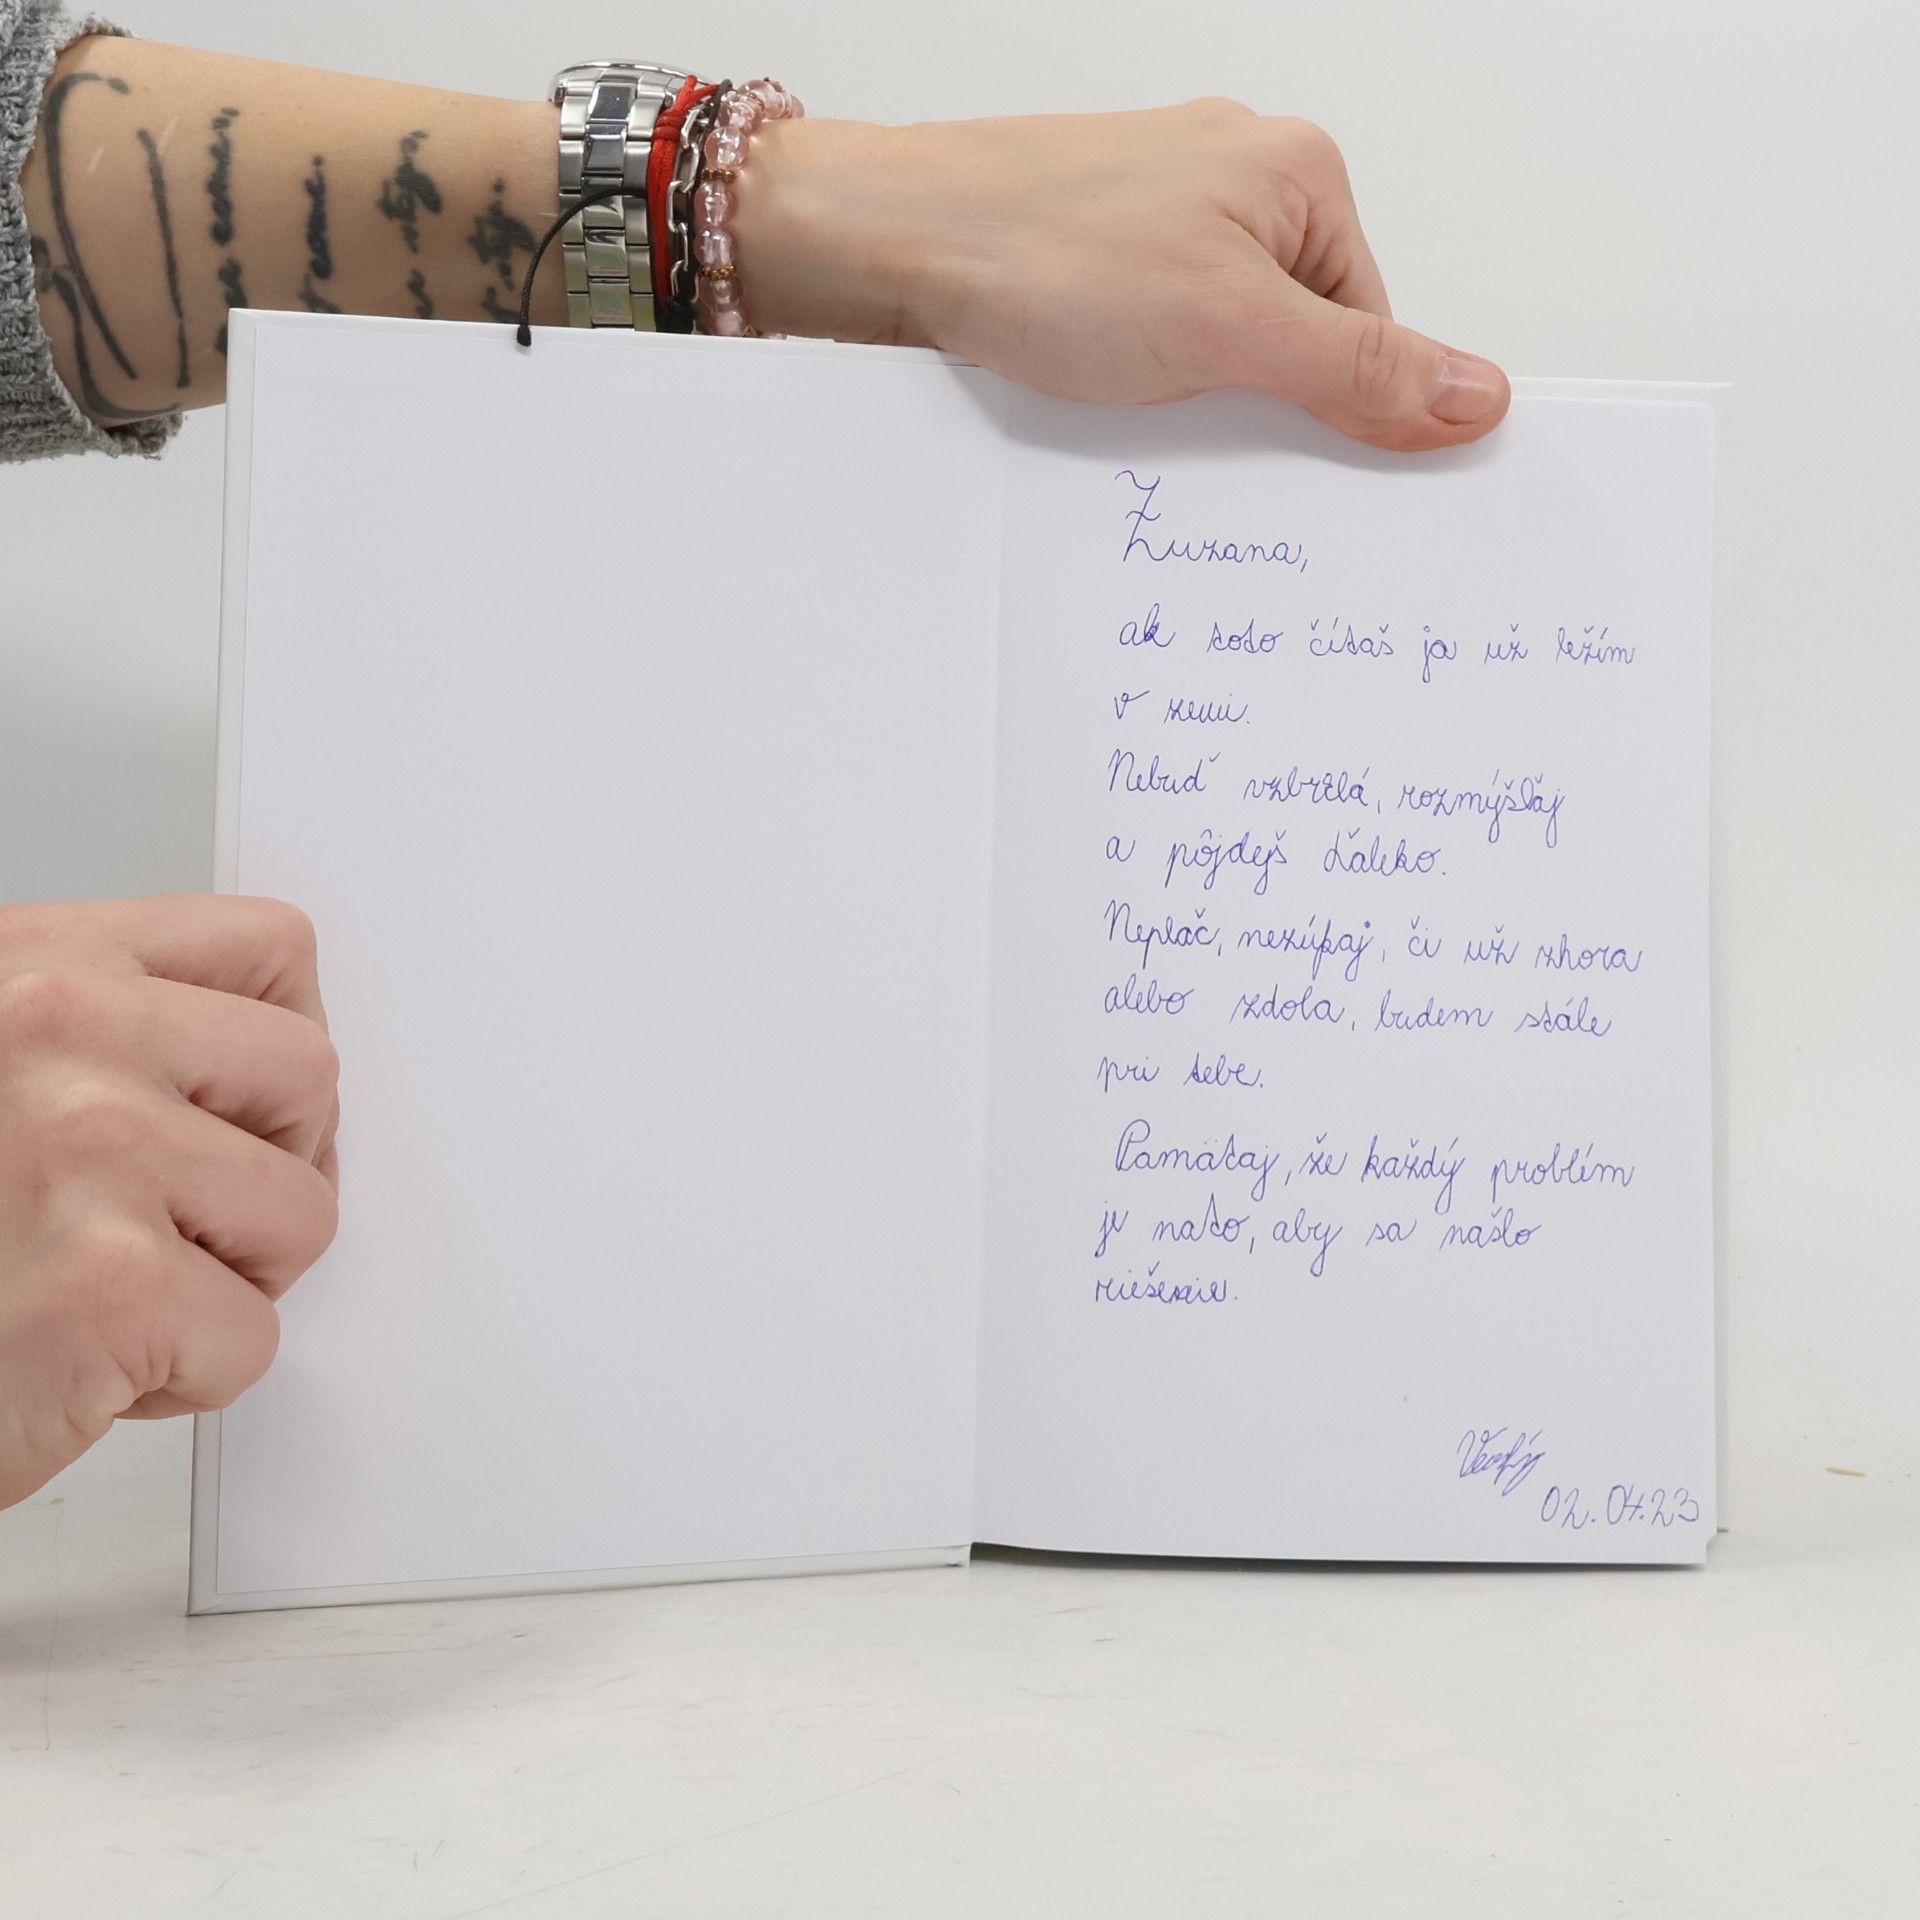 Z
Zuzana,
ak toto čítaš ja už ležím
v zemi.
Nebuď vzbrklá, rozmýšľaj
a pôjdeš ďaleko.
Neplač, nezúfaj, či už zhora
alebo zdola, budem stále
pri tebe.
Pamätaj, že každý problém
je nato, aby sa našlo
riešenie.
02.04.23